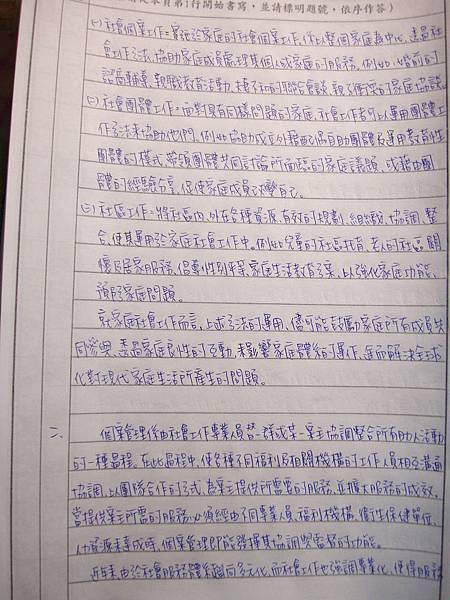 頁第1行開始書寫，並請標明題號，依序作答）
(一)社會個案工作=實施於家庭的社會個案工作，係以整個家庭為中心，透過社
會工作方法，協助家庭成員處理其個人或家庭的服務，例如：婚前的
諮商輔導、親職教育活動、夫妻的聯合會談、親子衝突的家庭協談。
(二)社會團體工作=面對具有同樣問題的家庭，社會工作者可以運用團體工
作方法來協助他們，例如：協助成立外籍配偶自助團體或運用教育性
團體的模式，帶領團體共同討論所面臨的家庭議題，或藉由團
體的經驗分享，促使家庭成員改變自己。
(三)社區工作=將社區內、外在各種資源，有效的規劃、組織、協調、整
合，使其運用於家庭社會工作中。例如：兒童的社區托育、老人的社區關
懷及居家服務、倡導性別平等、家庭生活教育方案，以強化家庭功能、
預防家庭問題。
就家庭社會工作而言，上述方法的運用，儘可能鼓勵家庭所有成員共
同參與，透過家庭良性的互動，來影響家庭體系的運作，進而解決全球
化對現代家庭生活所產生的問題。
二、
個案管理係由社會工作專業人員替一群或某一案主協調整合所有助人活動
的一種過程。在此過程中，使各種不同福利及相關機構的工作人員相互溝通
協調，以團隊合作的方式，為案主提供所需要的服務，並擴大服務的成效。
當提供案主所需的服務，必須經由不同專業人員、福利機構、衛生保健單位、
人力資源來達成時，個案管理即能發揮其協調與監督的功能。
近年來，由於社會服務體系趨向多元化，而社會工作也強調專業化，使得服務